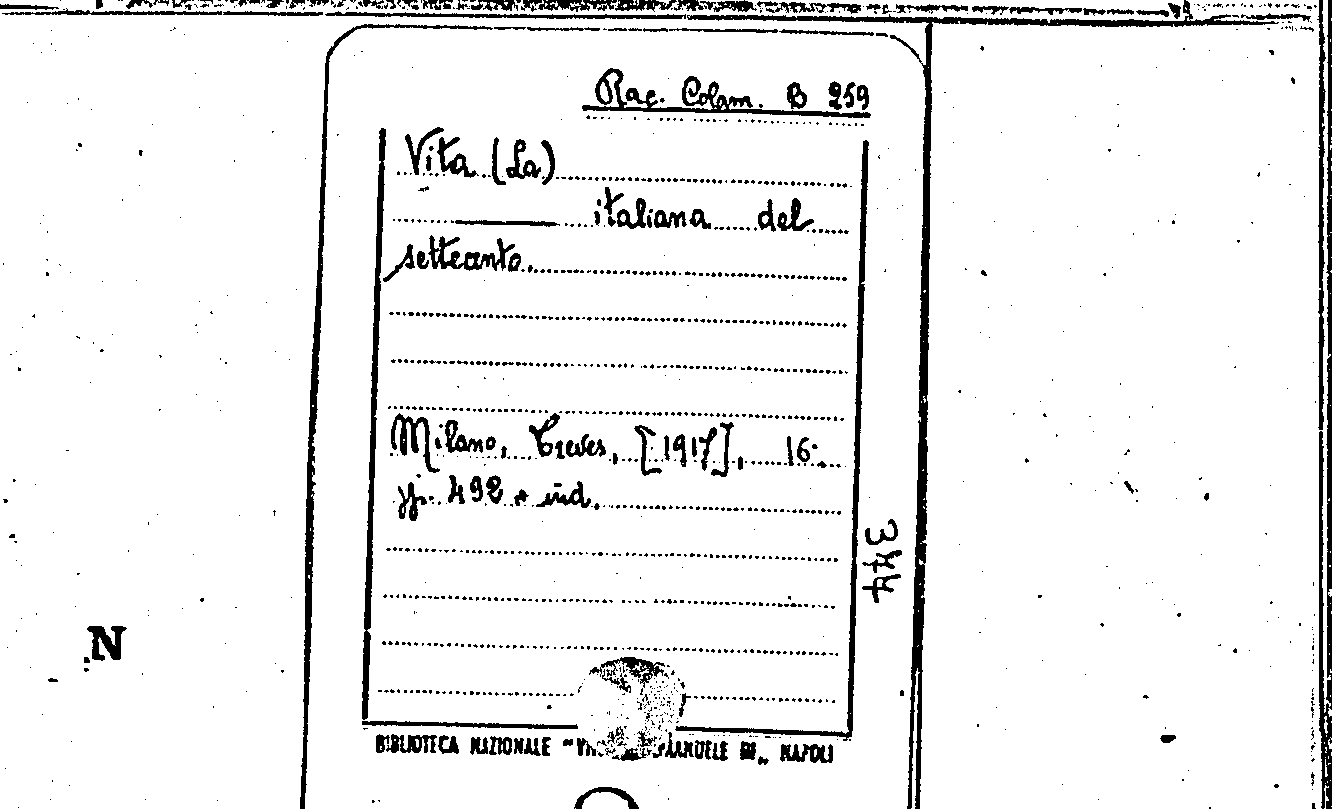 Rac. Colam. B 259
Vita (La)
italiana del
settecento.
Milano, Treves, [1917], 16°.
pp. 492 + ind.
344
N
BIBLIOTECA NAZIONALE NAPOLI